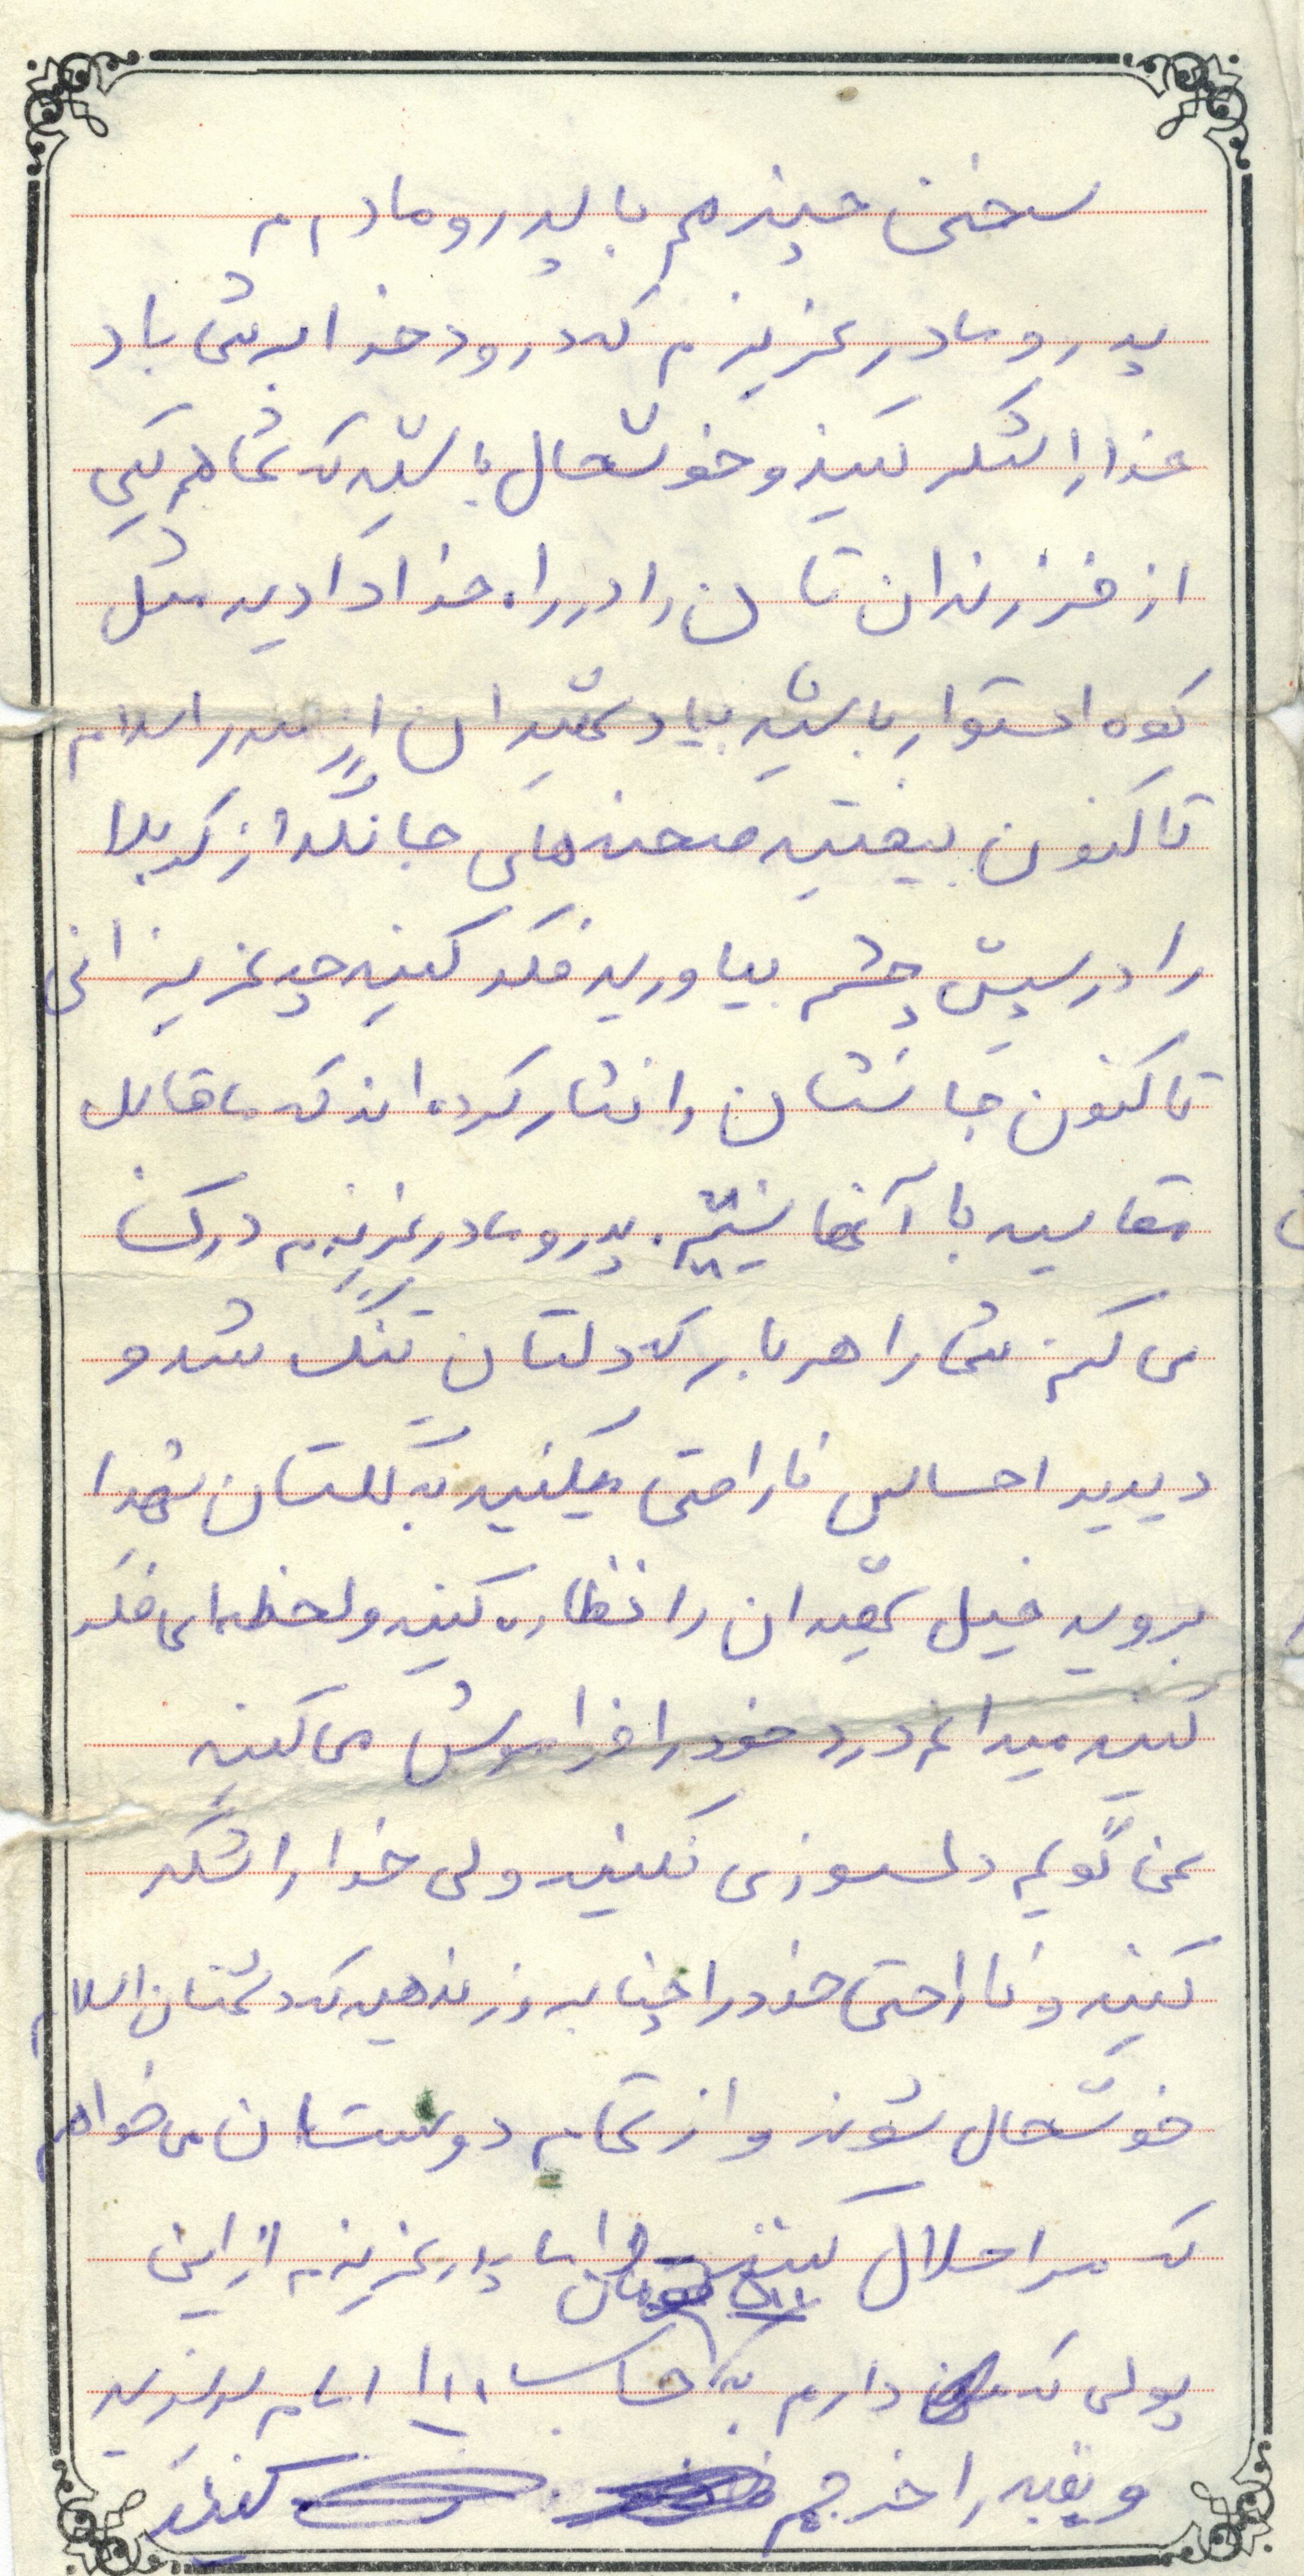 سخنی چند هم با پدر و مادرم
پدر و مادر عزیزم که درود خدا بر شما باد
خدا را شکر کنید و خوشحال باشید که شما هم یکی
از فرزندان تان را در راه خدا دادید مثل
کوه استوار باشید بیاد شهیدان از صدر اسلام
تا کنون بیفتید صحنه های جانگداز کربلا
را در پیش چشم بیاورید فکر کنید چه عزیزانی
تا کنون جانشان را نثار کرده اند که ما قابل
مقایسه با آنها نیستیم. پدر و مادر عزیزم درک
می کنم شما را هر بار که دلتان تنگ شد و
دیدید احساس ناراحتی میکنید به گلستان شهدا
بروید خیل شهیدان را نظاره کنید و لحظه ای فکر
کنید میدانم درد خود را فراموش می کنید
نمی گویم دلسوزی نکنید ولی خدا را شکر
کنید و ناراحتی خود را چنان بروز ندهید که دشمنان اسلام
خوشحال شوند و از تمام دوستان می خواهم
که مرا حلال کنند و اما پدر عزیزم از این
تومان
پولی که دارم به حساب ۱۰۰ امام بریزید
و بقیه را خرجم کنید